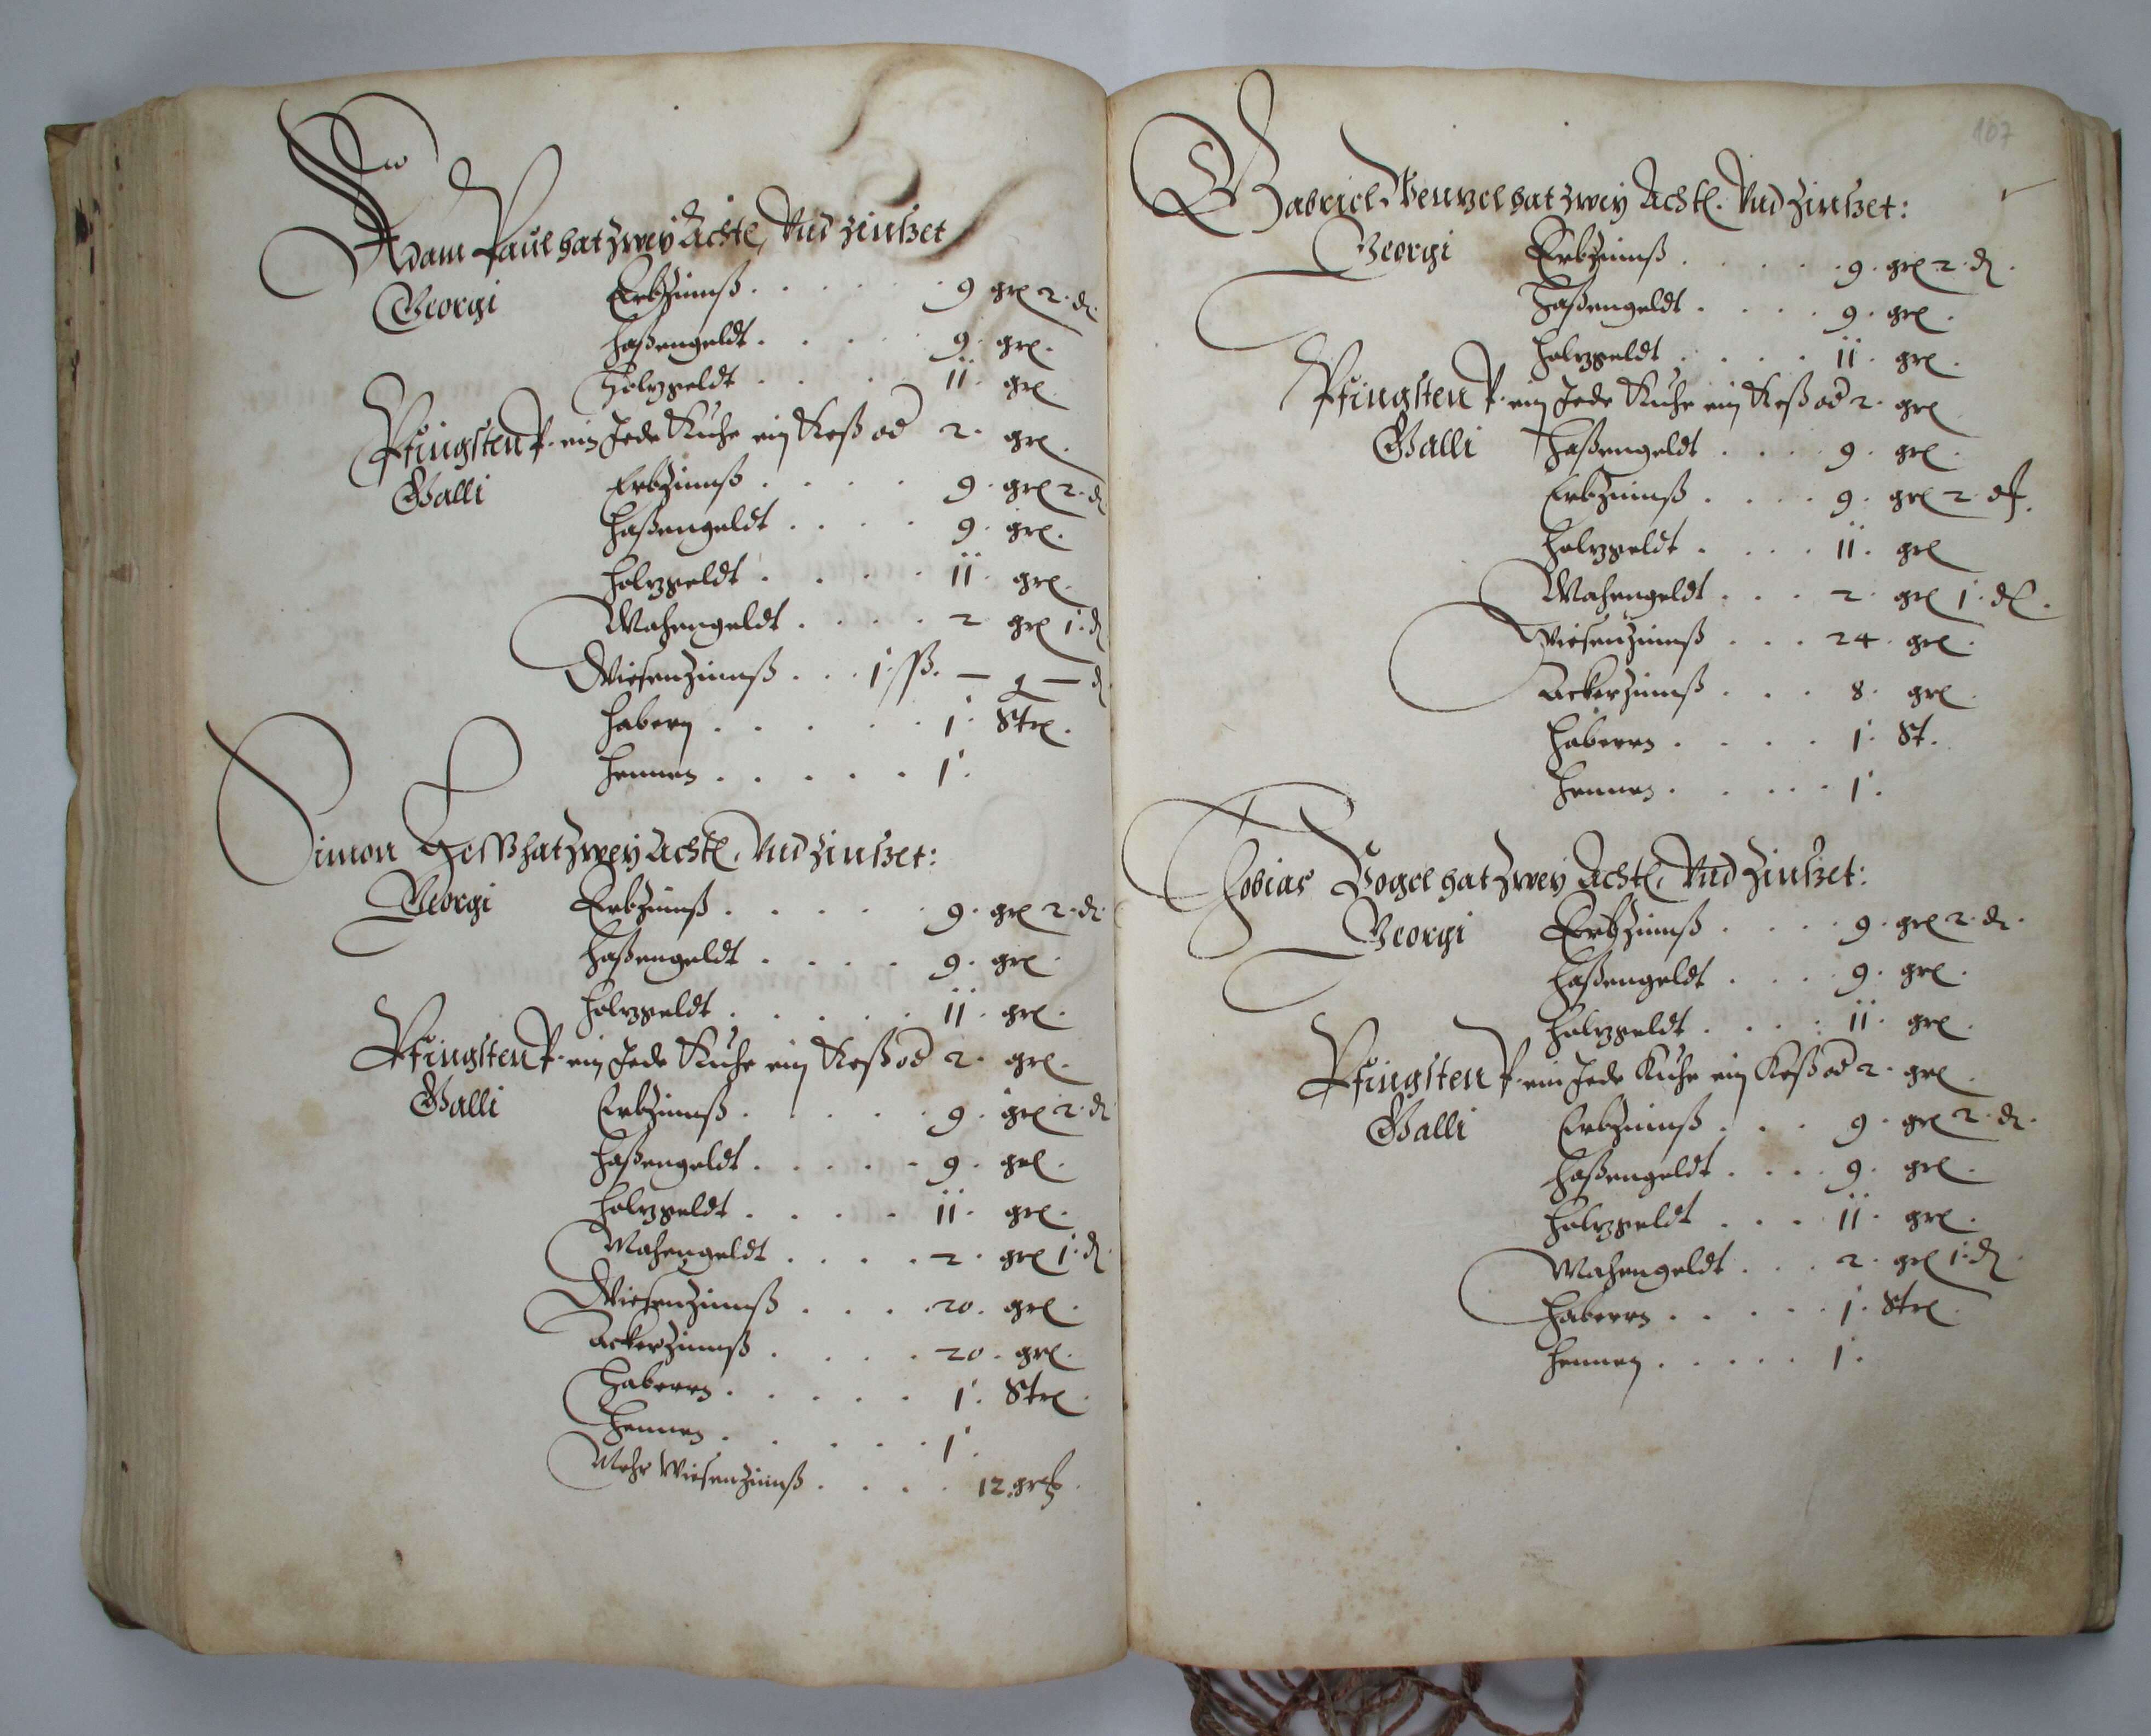 Adam Paul hat zwey Achtl, Vnd zinßet
Georgi Erbzinnß . . . . . 9 grl 2. dl.
Haßengeldt . . . . 9. grl.
Holzgeldt . . . . 11. grl.
Pfingsten P. ein Jede Kuhe ein Keß od 2. grl.
Galli Erbzinnß . . . . 9. grl 2. dl
Haßengeldt . . . . 9. grl.
Holzgeldt . . . . 11. grl.
Wahengeldt . . . . 2 grl 1. dl
Wiesenzinnß . . . 1. ßß. — g — dl
Habern . . . . . 1. Strl.
Hennen . . . . . 1.
Simon Heßß hat zwey Achtl, Vnd zinßet:
Georgi Erbzinnß . . . . . 9. grl 2. dl.
Haßengeldt . . . . 9. grl.
Holzgeldt . . . . . 11. grl.
Pfingsten P. ein Jede Kuhe ein Keß od 2. grl.
Galli Erbzinnß . . . . . 9. grl 2. dl
Haßengeldt . . . . . 9. grl.
Holzgeldt . . . . . 11. grl.
Wahengeldt . . . . 2. grl 1. dl.
Wiesenzinnß . . . . 20. grl.
Ackerzinnß . . . . 20. grl.
Habern . . . . . 1. Strl.
Hennen . . . . . 1.
Mehr Wiesenzinnß . . . . 12. grl
107
Gabriel Wenzel hat zwey Achtl. Vnd zinßet:
Georgi Erbzinnß . . . . . 9. grl 2. dl.
Haßengeldt . . . . 9. grl.
Holzgeldt . . . . 11. grl.
Pfingsten P. ein Jede Kuhe ein Keß od 2. grl
Galli Haßengeldt . . . . 9. grl.
Erbzinnß . . . . 9. grl 2. dl.
Holzgeldt . . . . 11. grl
Wahengeldt . . . 2. grl 1. dl.
Wiesenzinnß . . . 24. grl.
Ackerzinnß . . . 8. grl.
Habern . . . . 1. St.
Hennen . . . . . 1.
Tobias Vogel hat zwey Achtl, Vnd zinßet:
Georgi Erbzinnß . . . . 9. grl 2. dl.
Haßengeldt . . . 9. grl.
Holzgeldt . . . . 11. grl.
Pfingsten P. ein Jede Kuhe ein Keß od 2. grl.
Galli Erbzinnß . . . 9. grl 2. dl.
Haßengeldt . . . 9. grl.
Holzgeldt . . . 11. grl.
Wahengeldt . . . 2. grl 1. dl.
Habern . . . . . 1. Strl.
Hennen . . . . . 1.